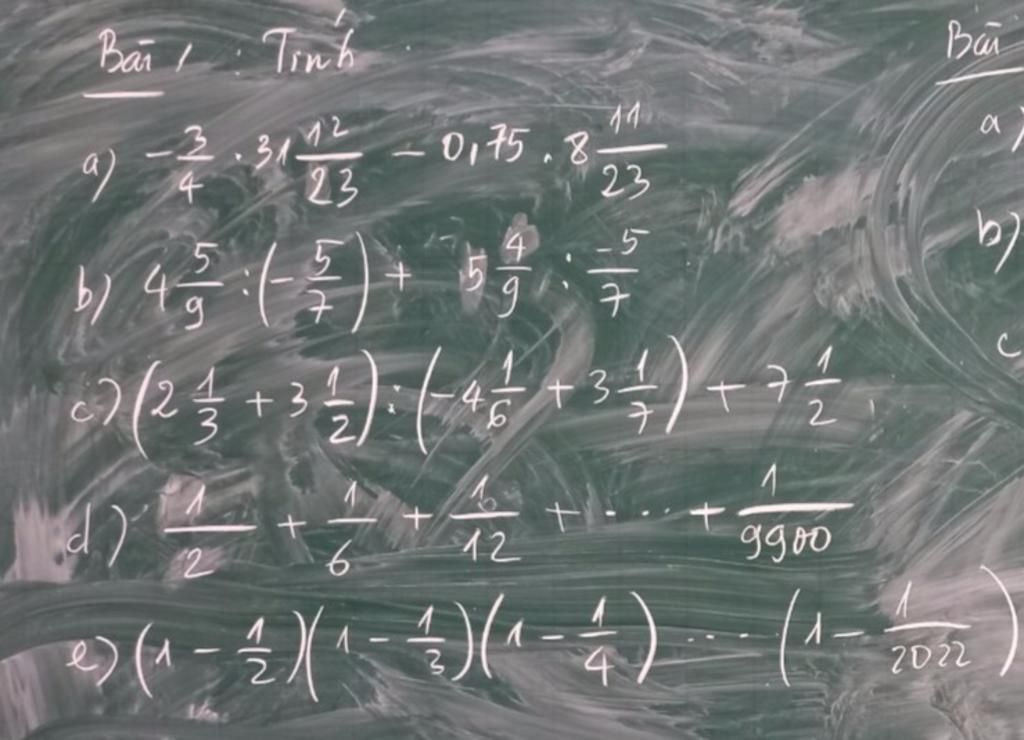 Bài 1 : Tính
a) -3/4 . 31 12/23 - 0,75 . 8 11/23
b) 4 5/9 : (-5/7) + 5 4/9 : -5/7
c) (2 1/3 + 3 1/2) : (-4 1/6 + 3 1/7) + 7 1/2
d) 1/2 + 1/6 + 1/12 + .... + 1/9900
e) (1 - 1/2)(1 - 1/3)(1 - 1/4) .... (1 - 1/2022)
Bài
a)
b)
c